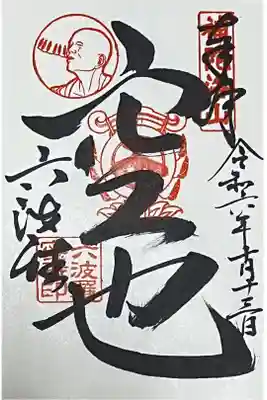 奉拝
令和六年十月十三日
空也
六波羅
六波羅蜜寺印